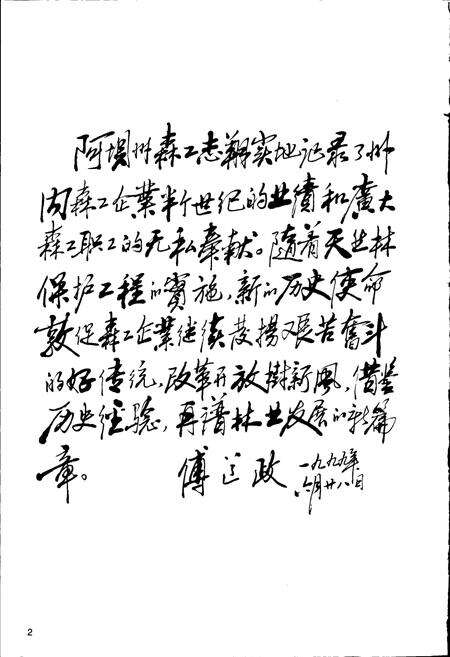 阿坝州森工志翔实地记录了州
内森工企業半个世纪的业績和廣大
森工职工的无私奉献。随着天然林
保护工程的實施，新的历史使命
敦促森工企業继续發揚艰苦奮斗
的好传统，改革开放树新風，借鉴
历史经验，再谱林业发展的新篇
章。 傅 政 一九九九年
六月廿八日
2